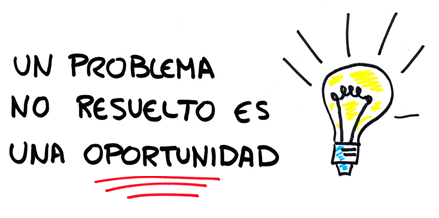 UN PROBLEMA
NO RESUELTO ES
UNA OPORTUNIDAD